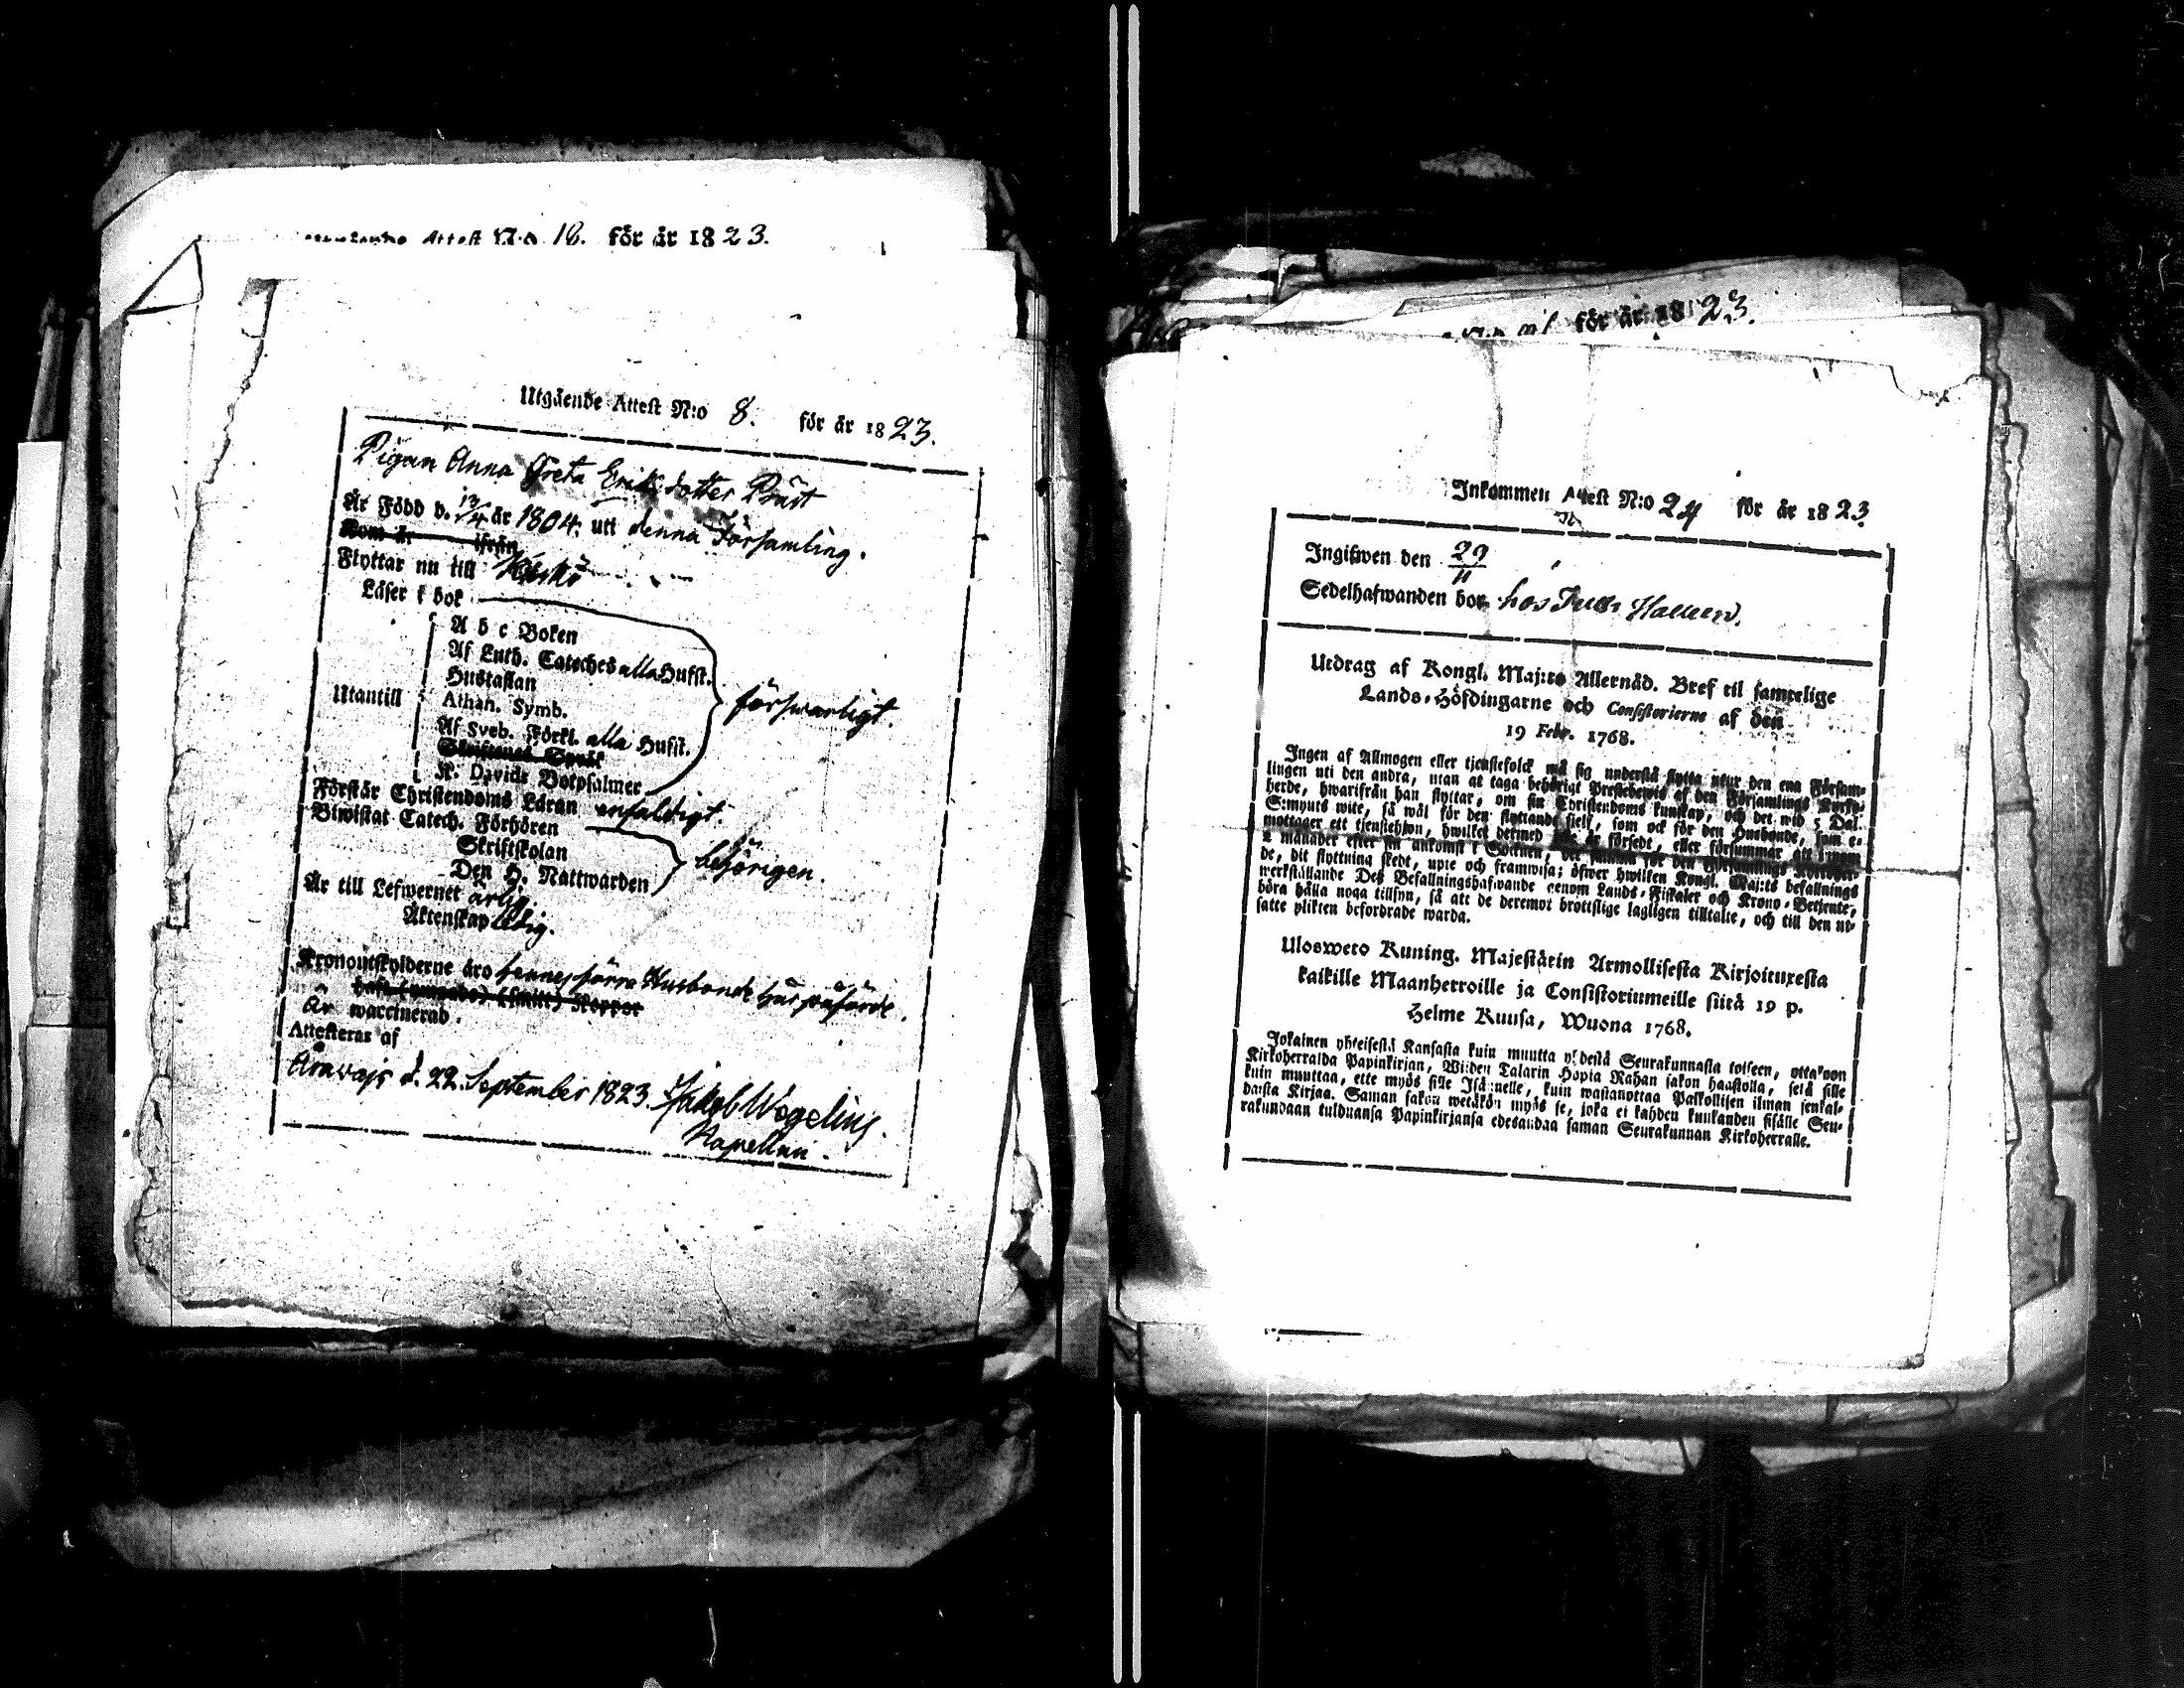 Attest N:o 18. för år 1823.
Utgående Attest N:o 8. för år 1823.
Pigan Anna Greta Eriksdotter Präst
Är Född d. 13/4 år 1804. uti denna Församling.
Som är ifrån
Flyttar nu till
Läser i bok
A b c Boken
Af Luth. Cateches alla Hufst.
Hustaflan
Utantill
Athan. Symb.
Af Sveb. Förkl. alla Hufst.
Skriftenes Språk
K. Davids Botpsalmer
försvarligt.
Förstår Christendoms Läran enfaldigt.
Biwistat Catech. Förhören
Skriftskolan
Den H. Nattwarden
behörigen.
Är till Lefwernet ärlig.
Äktenskap ledig.
Kronoutskylderne äro hennes förra Husbonde här påförde.
haft (umgabs) (smitt) Koppor
Är waccinerad.
Attesteras af
Orawais d. 22. September 1823. Jakob Wegelius.
Kapellan.
för år 1823.
Inkommen Attest N:o 24 för år 1823.
Ingifwen den 29/11
Sedelhafwanden bor hos
Utdrag af Kongl. Maj:ts Allernåd. Bref til samtelige
Lands-Höfdingarne och Consistorierne af den
19 Febr. 1768.
Ingen af Allmogen eller tjenstefolck må sig understå flytta utur den ena Försam-
lingen uti den andra, utan at taga behörigt Prestebewis af den Församlings Kyrko-
herde, hwarifrån han flyttar, om sin Christendoms kunskap, och det wid 5 Dal.
S:mynts wite, så wäl för den flyttande sielf, som ock för den Husbonde, som e-
mottager ett tjenstehjon, hwilket dermed icke är försedt, eller försummar att inom
2 månader efter sin ankomst i Socknen, det samma för den Församlings Kyrkoher-
de, dit flyttning skedt, upte och framwisa; öfwer hwilken Kongl. Maj:ts befallnings
werkställande Des Befallningshafwande genom Lands-Fiskaler och Krono-Betjente,
böra hålla noga tillsyn, så att de deremot brottslige lagligen tilltalte, och till den ut-
satte plikten befordrade warda.
Ulosweto Kuning. Majestätin Armollisesta Kirjoituxesta
kaikille Maanherroille ja Consistoriumeille siitä 19 p.
Helme Kuusa, Wuona 1768.
Jokainen yhteisestä Kansasta kuin muutta yhdestä Seurakunnasta toiseen, ottakoon
Kirkoherralda Papinkirjan, Wiiden Talarin Hopia Rahan sakon haastolla, sekä sille
kuin muuttaa, ette myös sille Isännelle, kuin wastanottaa Palkollisen ilman senkal-
daista Kirjaa. Saman sakon wetäkön myös se, joka ei kahden kuukauden sisälle Seu-
rakundaan tulduansa Papinkirjansa edesandaa saman Seurakunnan Kirkoherralle.